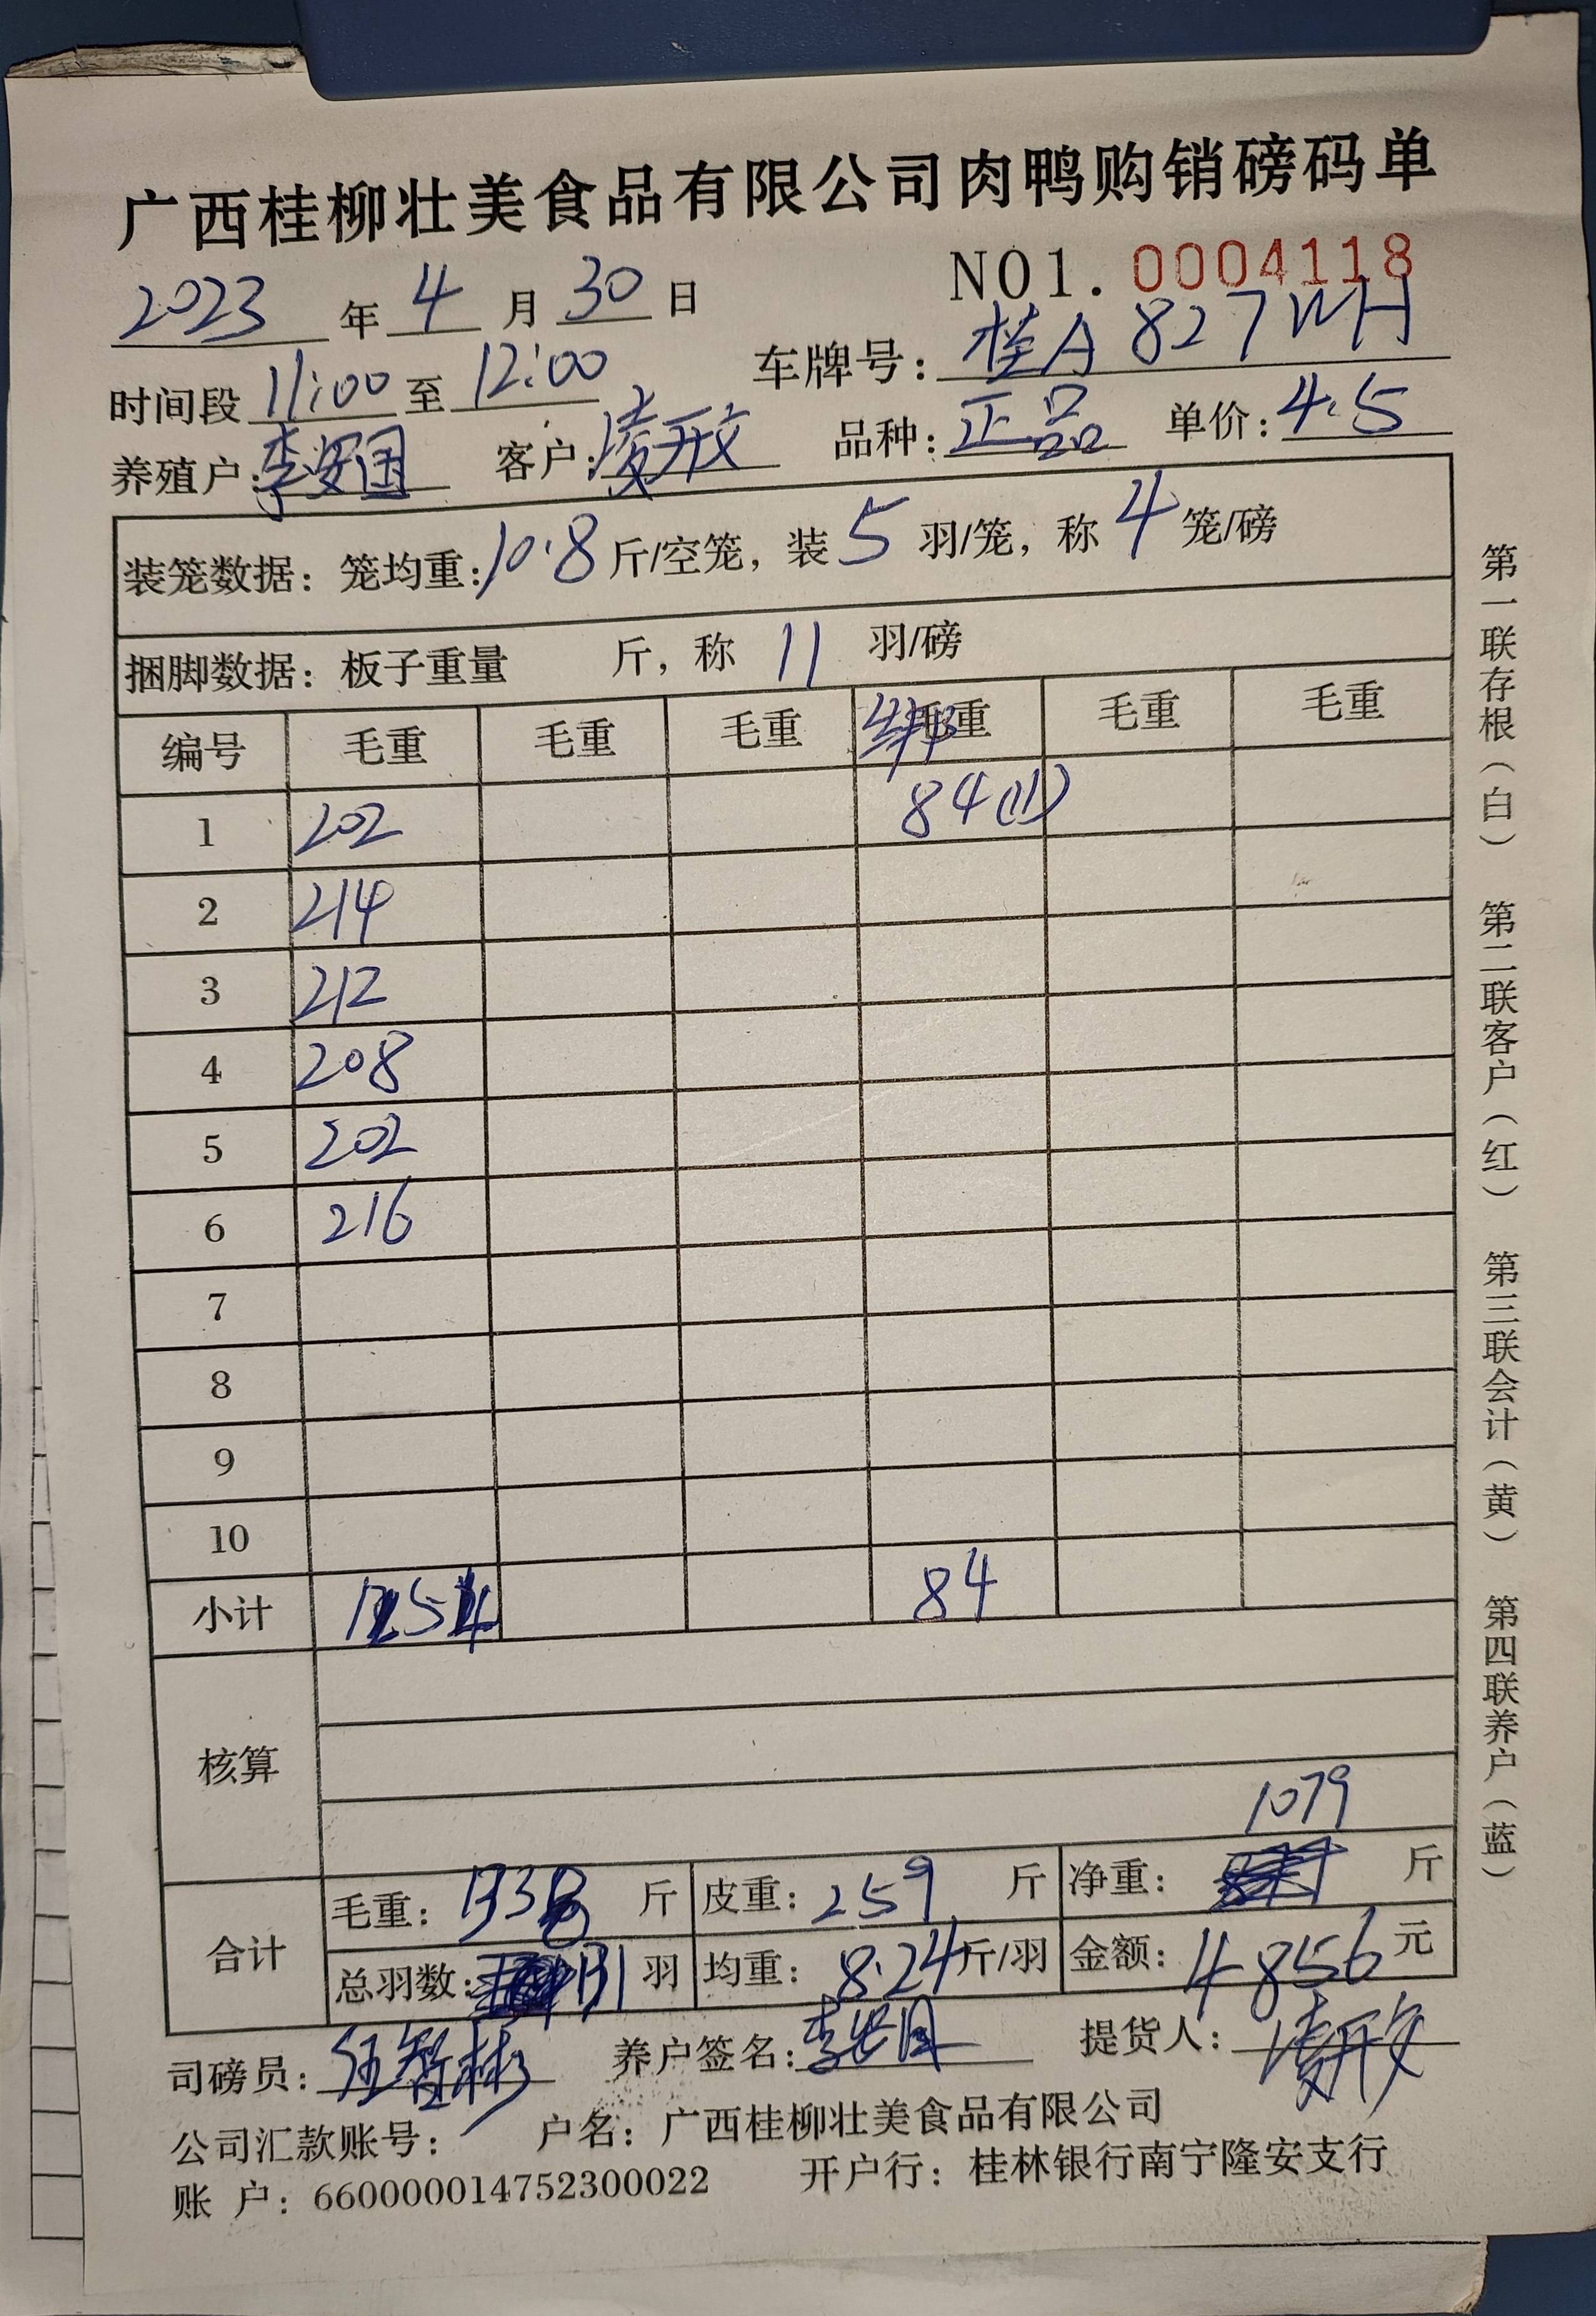 广西桂柳壮美食品有限公司肉鸭购销磅码单
NO1. 0004118
2023 年 4 月 30 日
车牌号: 桂A 827WH
时间段 11:00 至 12:00
养殖户: 李安国 客户: 凌开文 品种: 正品 单价: 4.5
装笼数据: 笼均重: 10.8 斤/空笼, 装 5 羽/笼, 称 4 笼/磅
捆脚数据: 板子重量 斤, 称 11 羽/磅
编号 毛重 毛重 毛重 毛重 毛重 毛重
1 202 84(11)
2 214
3 212
4 208
5 202
6 216
7
8
9
10
小计 1254 84
核算
1079
合计
毛重: 1338 斤 皮重: 259 斤 净重: 斤
总羽数: 131 羽 均重: 8.24 斤/羽 金额: 4856 元
司磅员: 养户签名: 李安国 提货人: 凌开文
公司汇款账号: 户名: 广西桂柳壮美食品有限公司
账 户: 660000014752300022 开户行: 桂林银行南宁隆安支行
第一联存根(白) 第二联客户(红) 第三联会计(黄) 第四联养户(蓝)